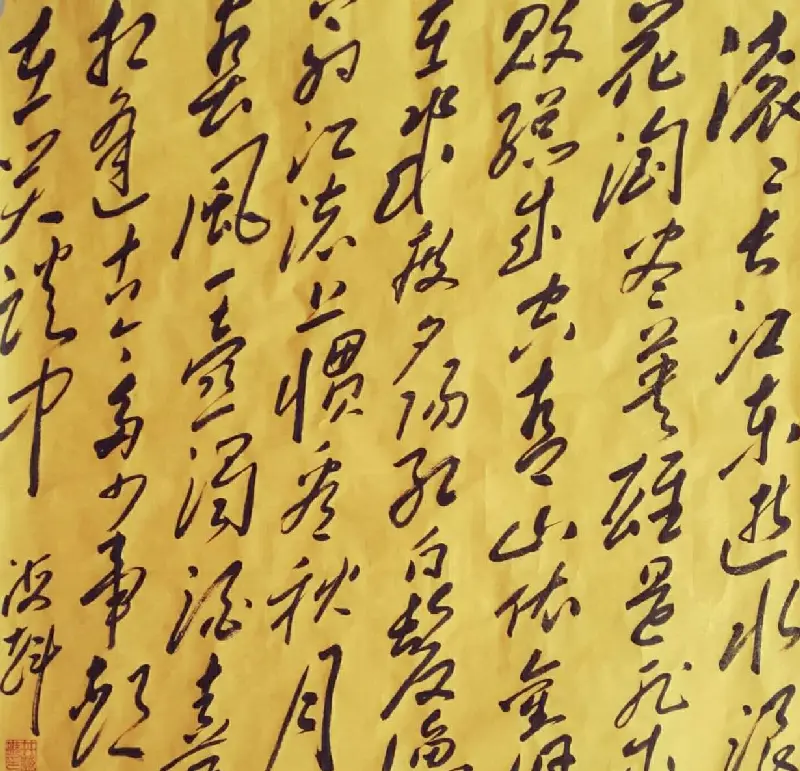 滚〻长江东逝水浪
花淘尽英雄是非成
败总成空青山依
在几度夕阳红白发渔
翁江渚上惯看秋月
春风一壶浊酒喜
相逢古今多少事都
在笑谈中